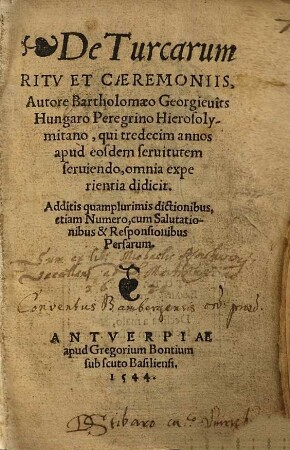 De Turcarum
RITV ET CÆREMONIIS,
Autore Bartholomæo Georgieuits
Hungaro Peregrino Hierosoly-
mitano, qui tredecim annos
apud eosdem seruitutem
seruiendo, omnia expe
rientia didicit.
Additis quamplurimis dictionibus,
etiam Numero, cum Salutatio-
nibus & Responsionibus
Persarum.
Sum ex
Conventus Bambergensis ord. præd.
ANTVERPIAE
apud Gregorium Bontium
sub scuto Basiliensi.
1544.